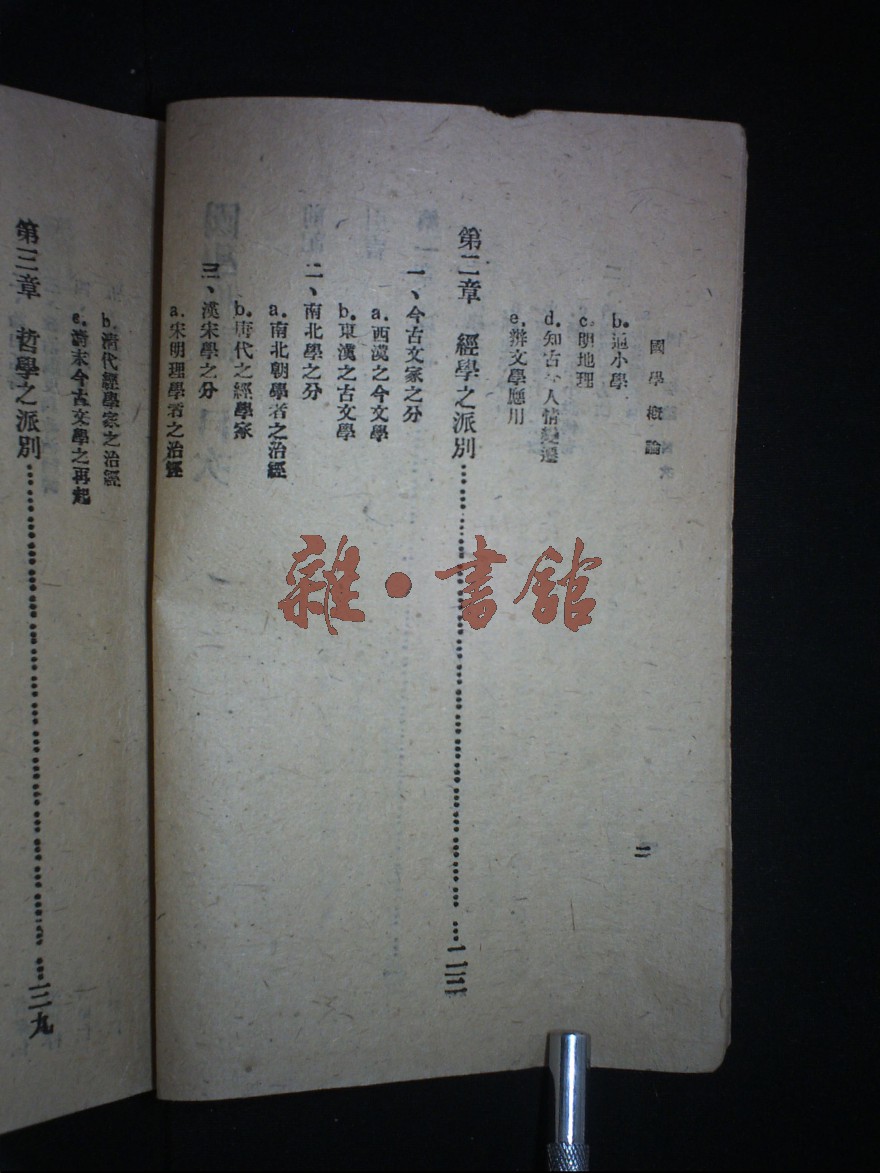 國學概論
二
b.通小學
c.明地理
d.知古今人情變遷
e.辨文學應用
第二章 經學之派別
一、今古文家之分
a.西漢之今文學
b.東漢之古文學
二、南北學之分
a.南北朝學者之治經
b.唐代之經學家
三、漢宋學之分
a.宋明理學者之治經
b.清代經學家之治經
c.清末今古文學之再起
第三章 哲學之派別……三九
雜·書館